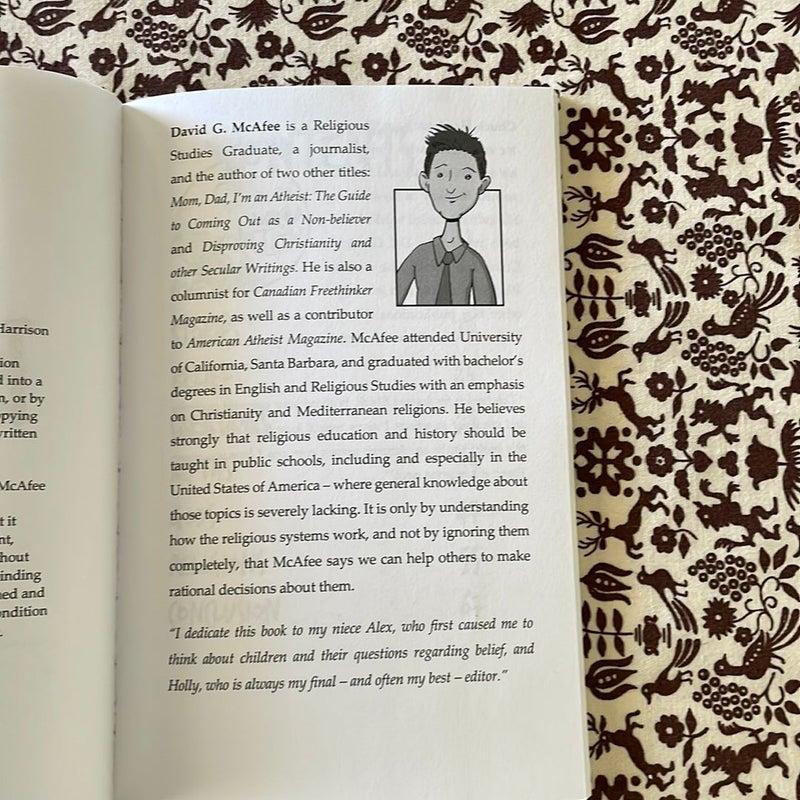 Harrison
ion
d into a
n, or by
opying
written
McAfee
t it
nt,
hout
inding
ned and
ondition
David G. McAfee is a Religious
Studies Graduate, a journalist,
and the author of two other titles:
Mom, Dad, I'm an Atheist: The Guide
to Coming Out as a Non-believer
and Disproving Christianity and
other Secular Writings. He is also a
columnist for Canadian Freethinker
Magazine, as well as a contributor
to American Atheist Magazine. McAfee attended University
of California, Santa Barbara, and graduated with bachelor's
degrees in English and Religious Studies with an emphasis
on Christianity and Mediterranean religions. He believes
strongly that religious education and history should be
taught in public schools, including and especially in the
United States of America – where general knowledge about
those topics is severely lacking. It is only by understanding
how the religious systems work, and not by ignoring them
completely, that McAfee says we can help others to make
rational decisions about them.
"I dedicate this book to my niece Alex, who first caused me to
think about children and their questions regarding belief, and
Holly, who is always my final – and often my best – editor."